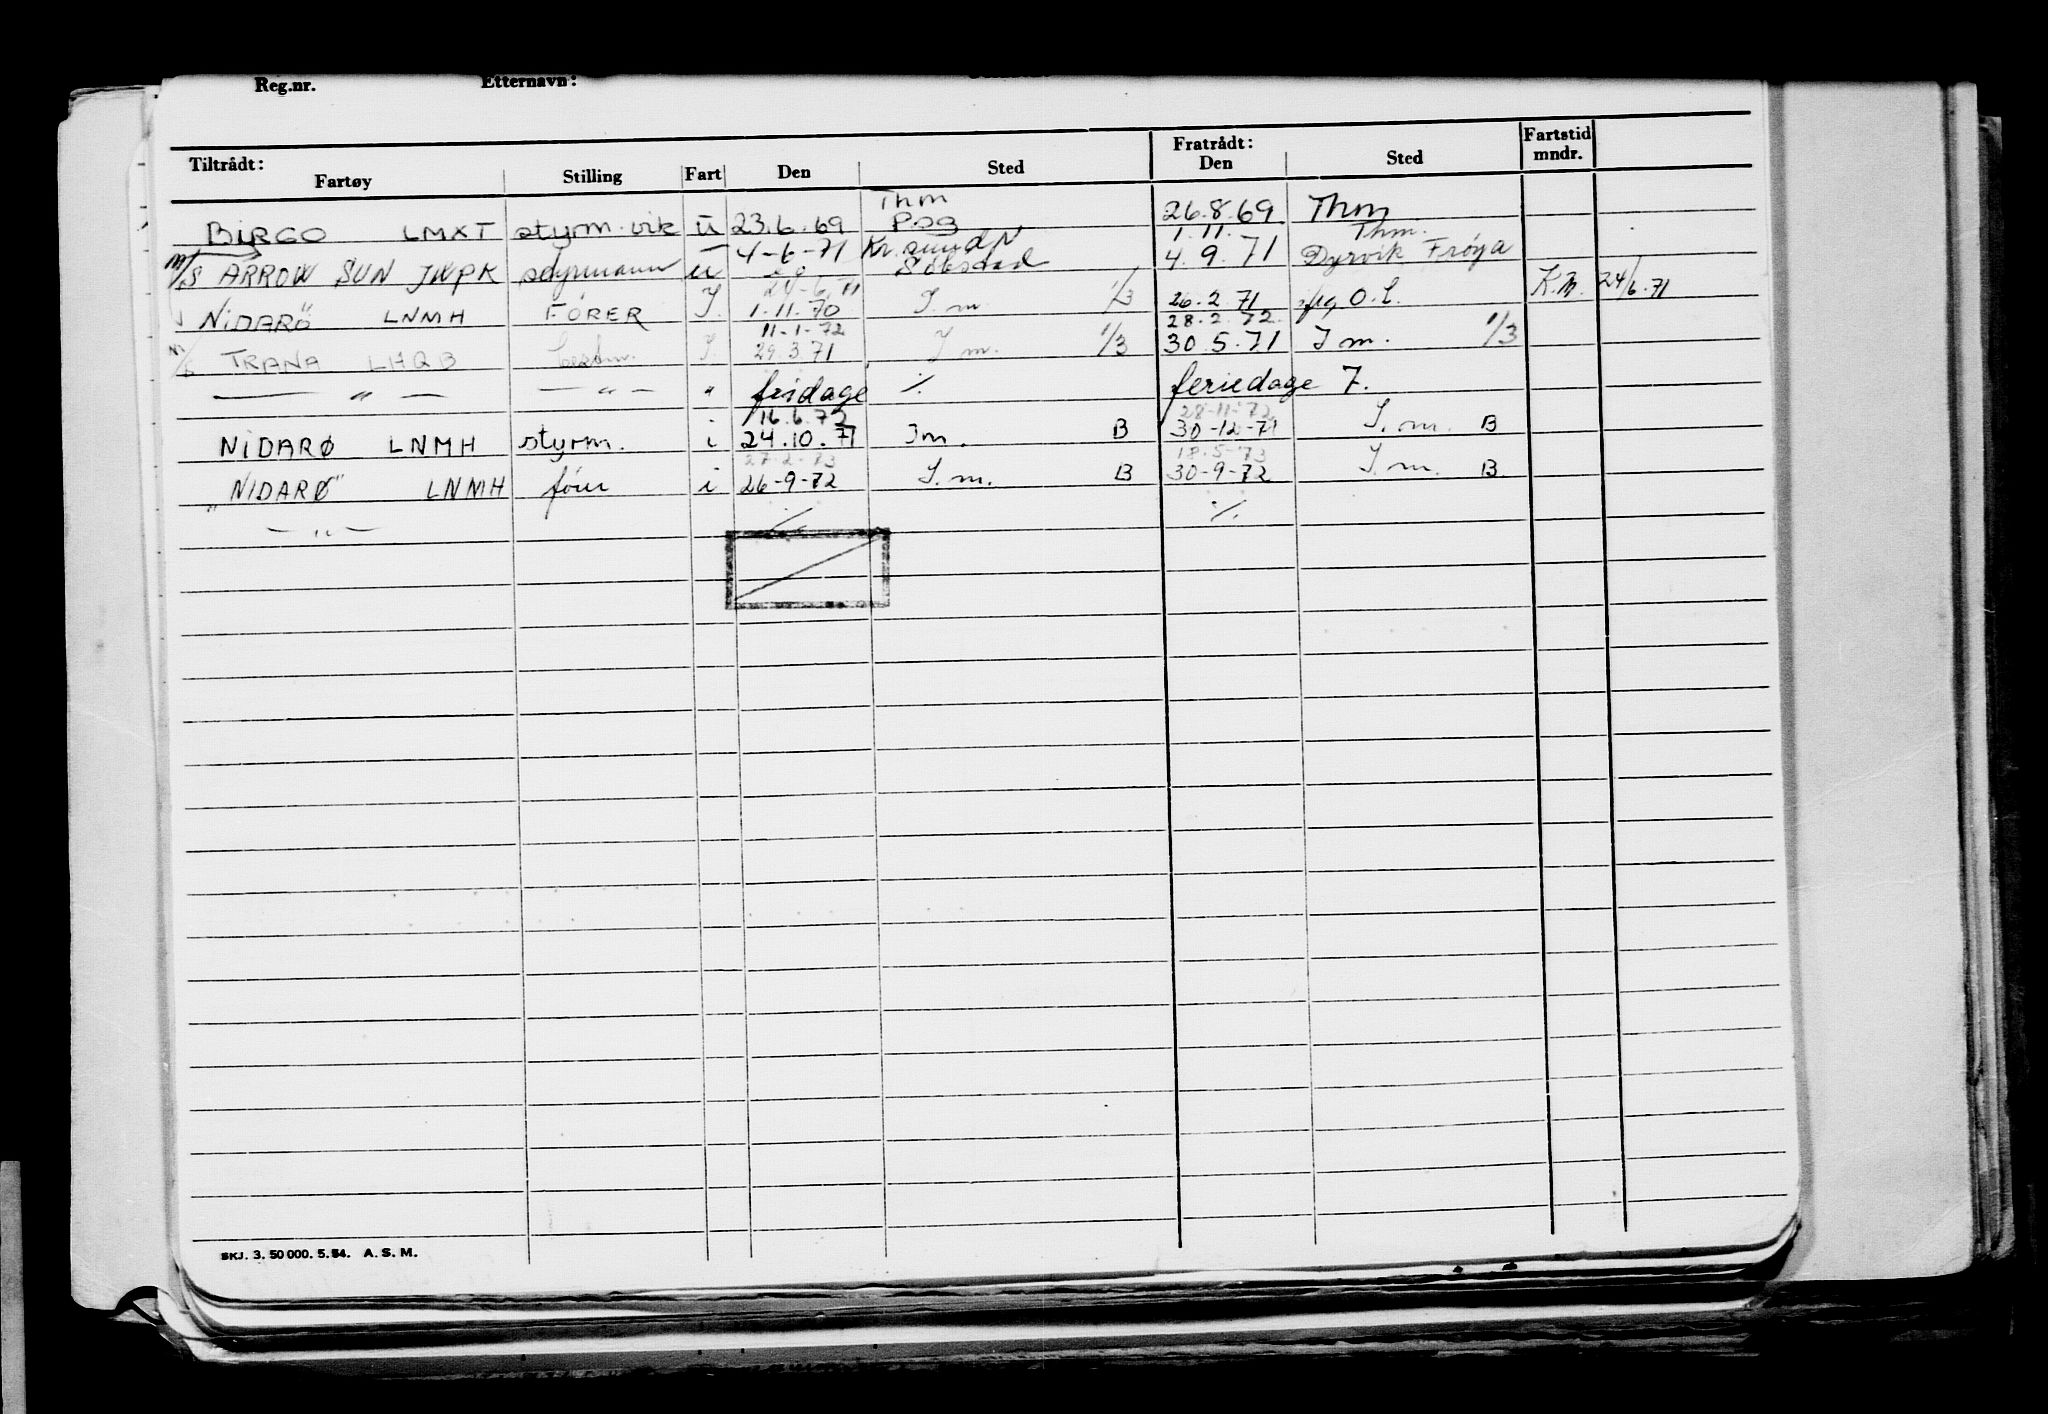 Reg.nr. Etternavn:
Tiltrådt: Fratrådt: Fartstid
Fartøy Stilling Fart Den Sted Den Sted mndr.
Thm
BIRGO LMXT styrm. vik u 23.6.69 26.8.69 Thm
4-6-71 Kr.sund N 1.11. Thm.
M/S ARROW SUN JXPK styrmann u 4.9.71 Dyrvik Frøya
24-6.71
NIDARØ LNMH FÖRER I. 1.11.70 I. m. 1/3 26.2.71 O.L. K.M. 24/6.71
11-1-72 28.2.72
TRANA LHQB I. 29.3.71 I m. 1/3 30.5.71 I m. 1/3
— " — — " — " fridage % feriedage 7.
16.6.72 28-11-72
NIDARØ LNMH styrm. i 24.10.71 Im. B 30-12-71 I. m. B
27-2-73 18.5-73
"NIDARØ" LNMH förer i 26-9-72 I. m. B 30-9-72 I. m. B
— " — % %
SKJ. 3. 50 000. 5. 54. A. S. M.